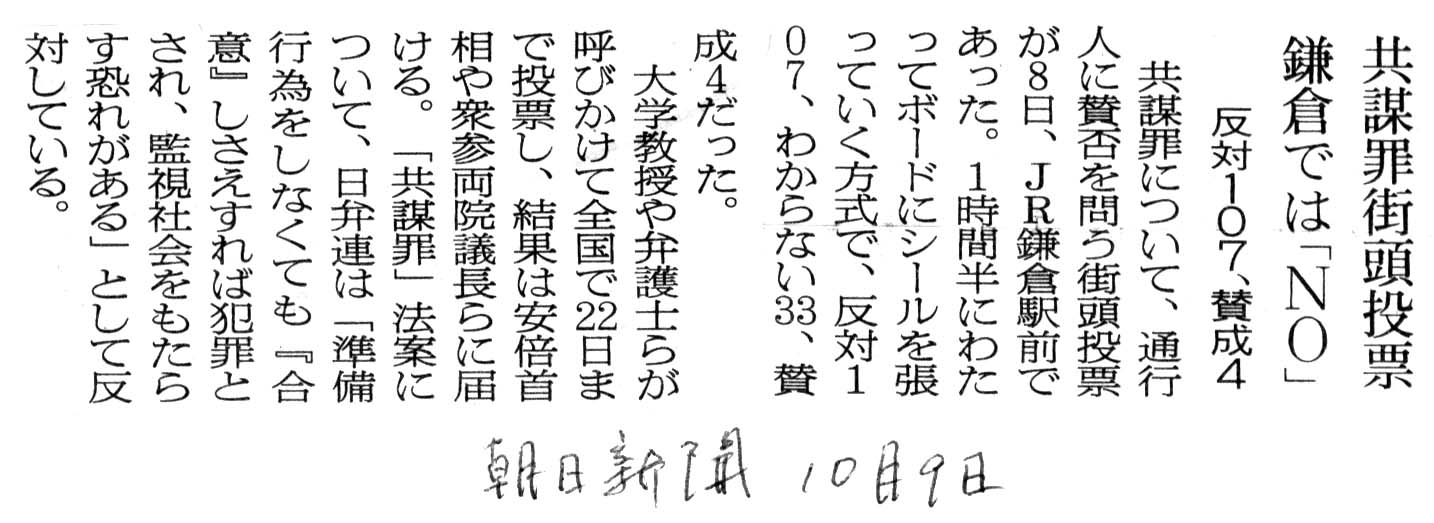 共謀罪街頭投票
鎌倉では「NO」
反対107、賛成4
共謀罪について、通行
人に賛否を問う街頭投票
が8日、JR鎌倉駅前で
あった。1時間半にわた
ってボードにシールを張
っていく方式で、反対1
07、わからない33、賛
成4だった。
大学教授や弁護士らが
呼びかけて全国で22日ま
で投票し、結果は安倍首
相や衆参両院議長らに届
ける。「共謀罪」法案に
ついて、日弁連は「準備
行為をしなくても『合
意』しさえすれば犯罪と
され、監視社会をもたら
す恐れがある」として反
対している。
朝日新聞 10月9日